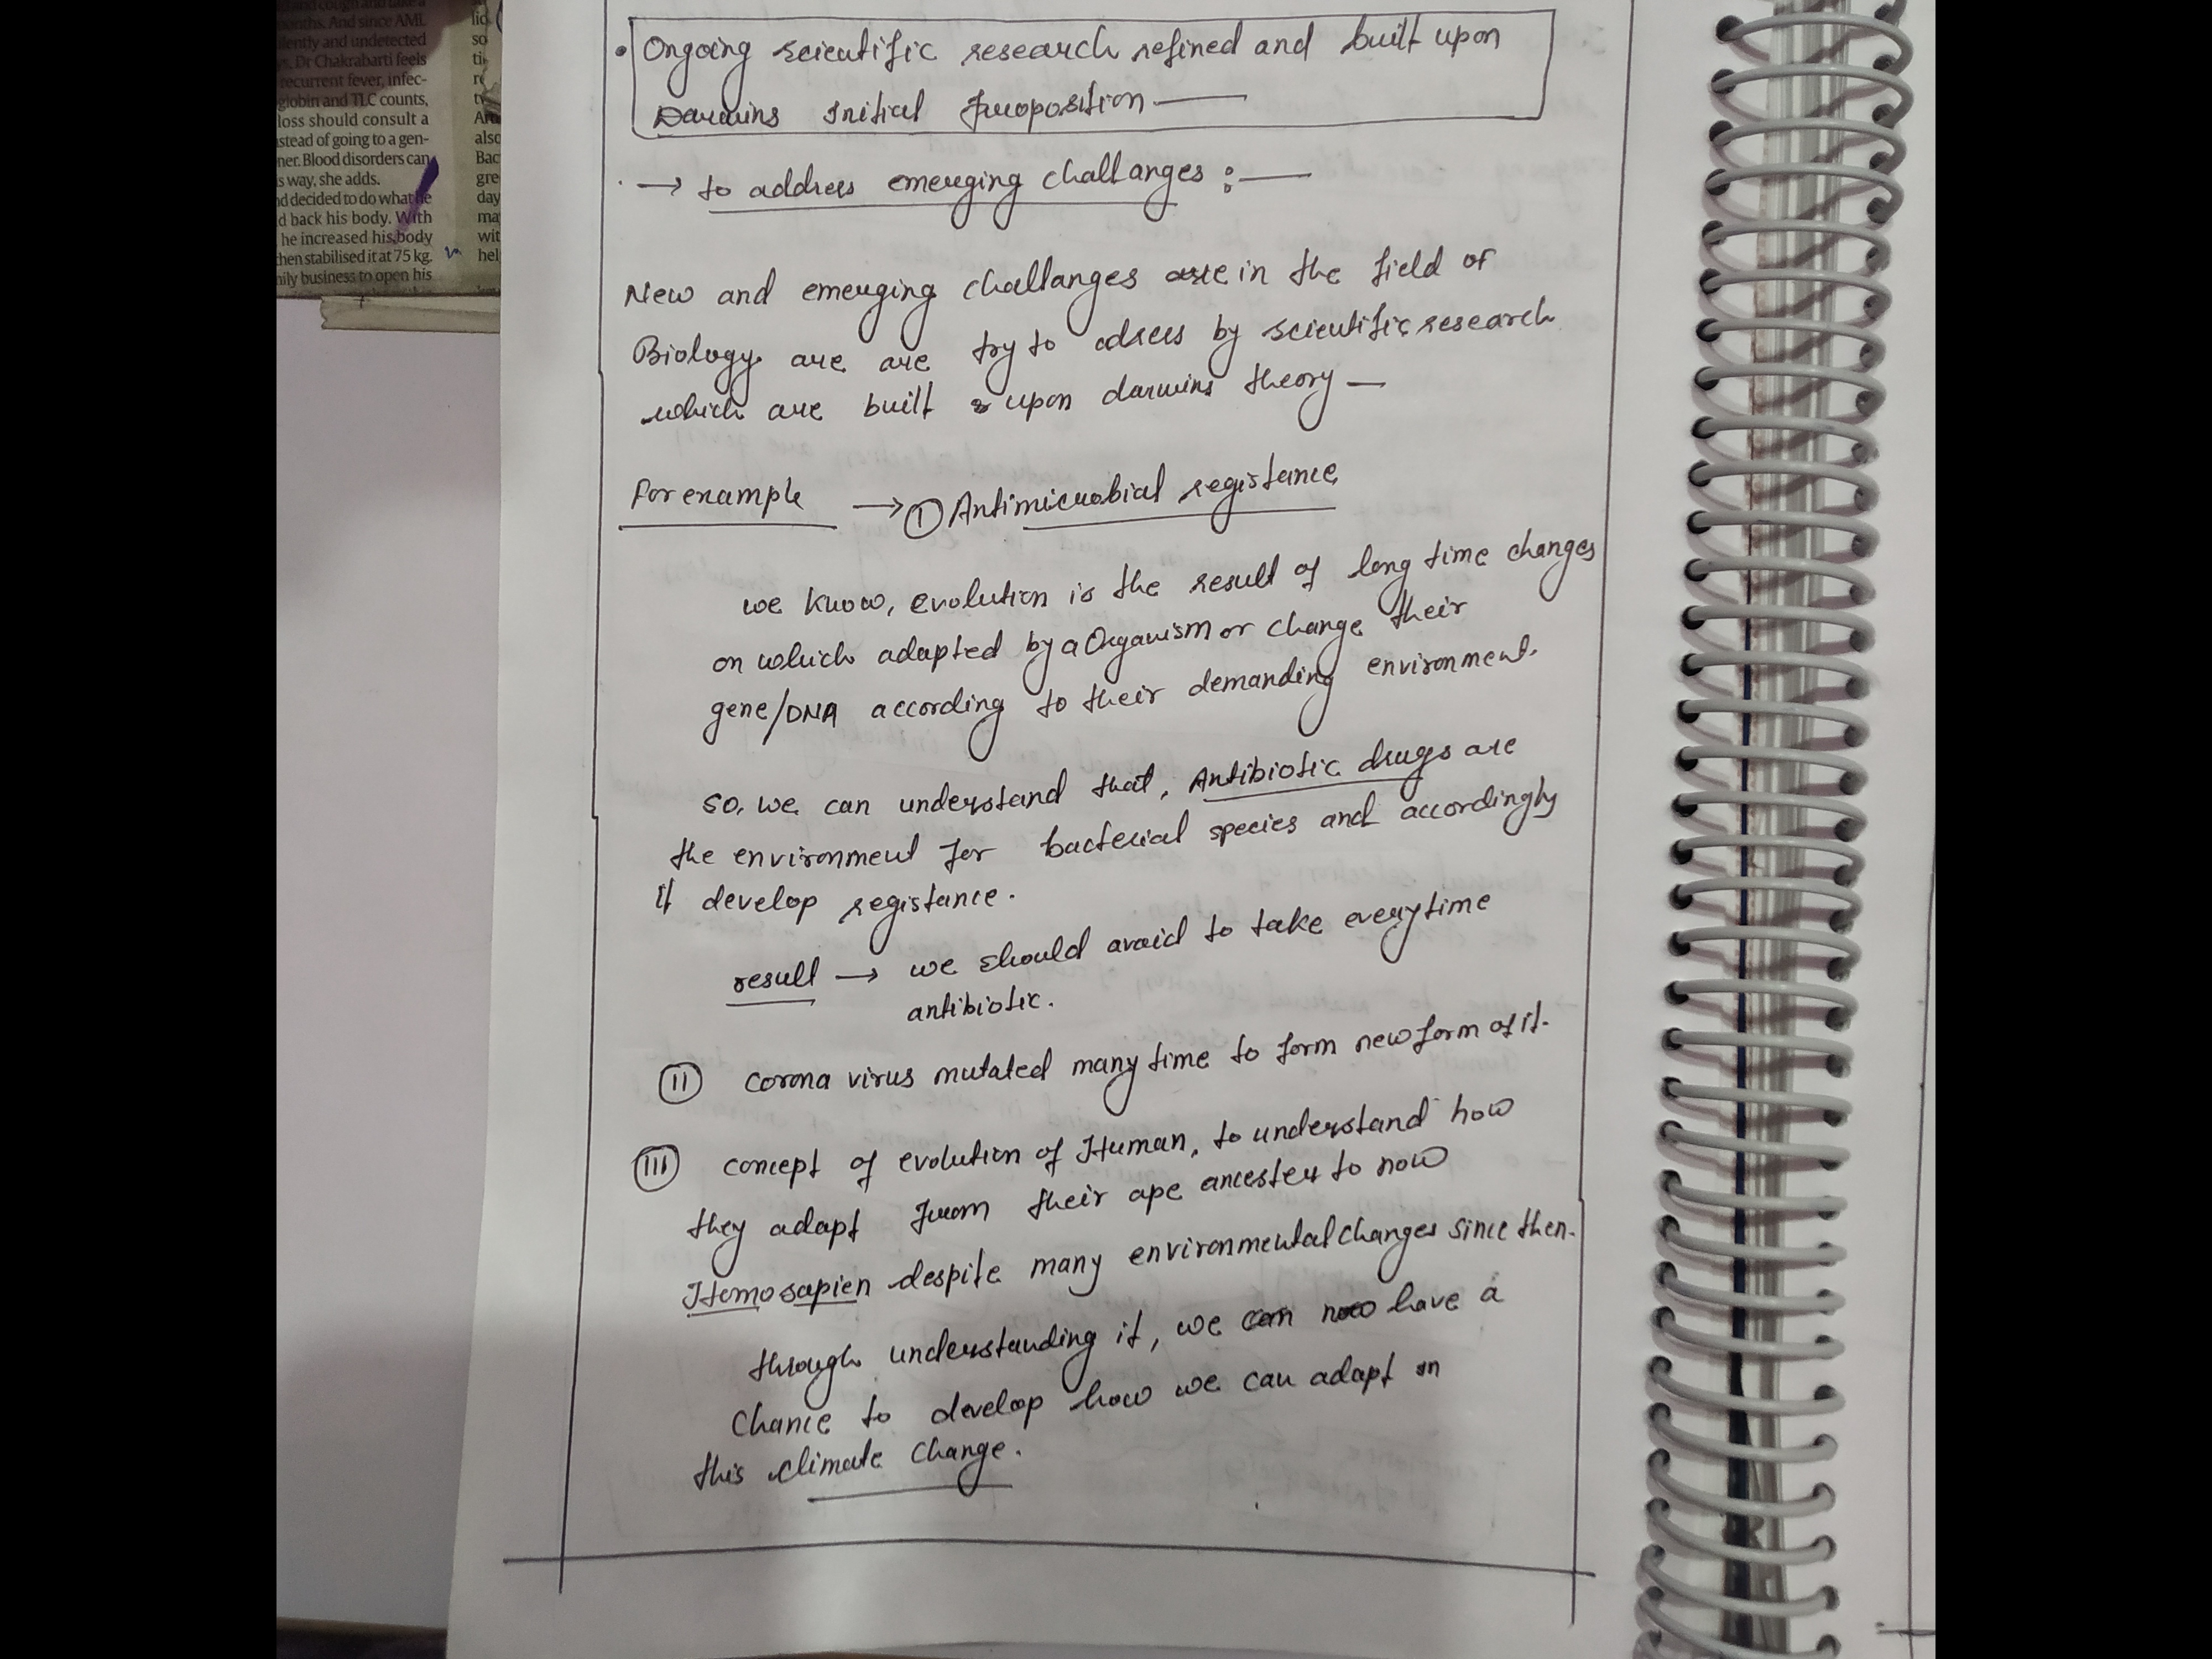 and cough and take a
months. And since AML
silently and undetected
s, Dr Chakrabarti feels
recurrent fever, infec-
globin and TLC counts,
loss should consult a
stead of going to a gen-
ner. Blood disorders can
s way, she adds.
d decided to do what he
d back his body. With
he increased his body
hen stabilised it at 75 kg.
ily business to open his
so
also
Bac
gre
day
ma
wit
hel
• Ongoing scientific research refined and built upon
Darwins initial proposition —
→ to address emerging challanges :—
New and emerging challanges are in the field of
Biology are are try to adress by scientific research
which are built upon darwins theory —
For example → ① Antimicrobial registance
we know, evolution is the result of long time changes
on which adapted by a Organism or change their
gene/DNA according to their demanding environment.
so, we can understand that, Antibiotic drugs are
the environment for bacterial species and accordingly
it develop registance.
result → we should avoid to take everytime
antibiotic.
II corona virus mutated many time to form new form of it.
III concept of evolution of Human, to understand how
they adapt from their ape ancester to now
Homosapien despite many environmental changes since then.
through understanding it, we can now have a
Chance to develop how we can adapt in
this climate change.